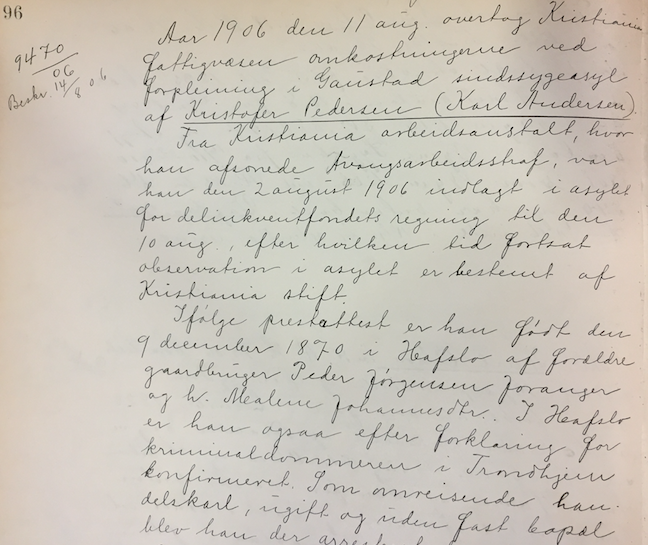 96
9470
06
Beskr. 14/8 06
Aar 1906 den 11 aug. overtog Kristiania
fattigvæsen omkostningerne ved
forpleining i Gaustad sindssygeasyl
af Kristofer Pedersen (Karl Andersen).
Fra Kristiania arbeidsanstalt, hvor
han afsonede tvangsarbeidsstraf, var
han den 2 august 1906 indlagt i asylet
for delinkventfondets regning til den
10 aug., efter hvilken tid fortsat
observation i asylet er bestemt af
Kristiania stift.
Ifølge prestattest er han født den
9 december 1870 i Hafslo af forældre
gaardbruger Peder Jørgensen Joranger
og h. Malene Johannesdtr.. I Hafslo
er han ogsaa efter forklaring for
kriminaldommeren i Trondhjem
konfirmeret. Som omreisende han-
delskarl, ugift og uden fast bopæl
blev han der